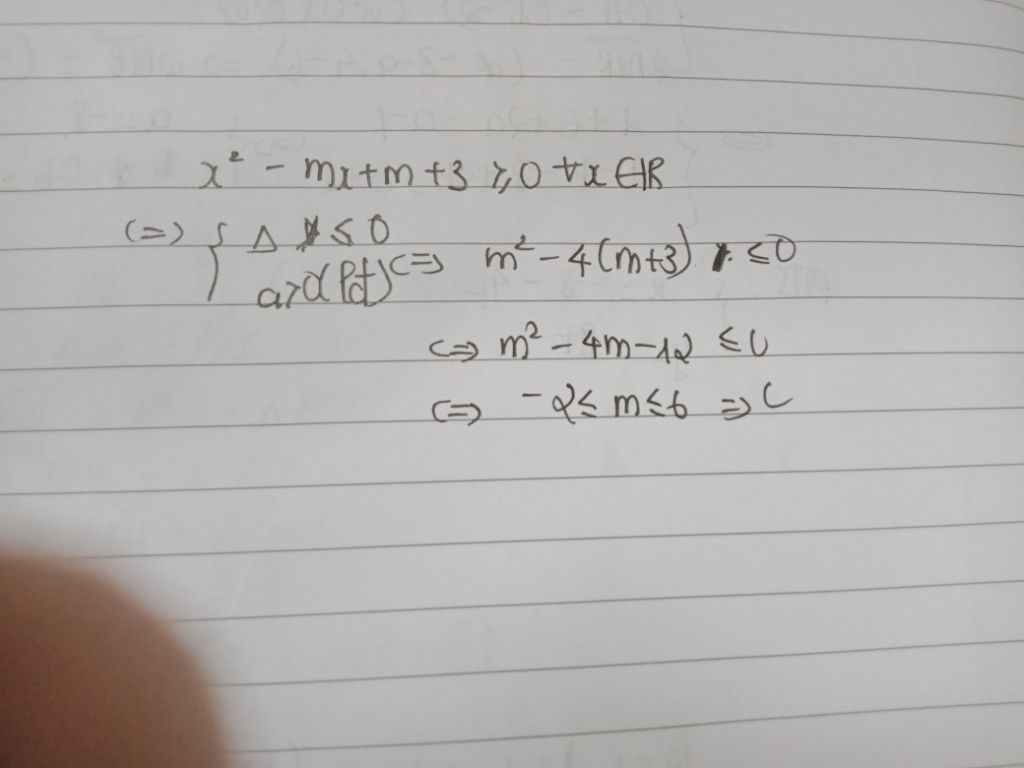 x² - mx + m + 3 ≥ 0 ∀x ∈ ℝ
(=) { Δ ≤ 0
a > 0 (Pđ) <=> m² - 4(m+3) ≤ 0
<=> m² - 4m - 12 ≤ 0
(=) -2 ≤ m ≤ 6 => C